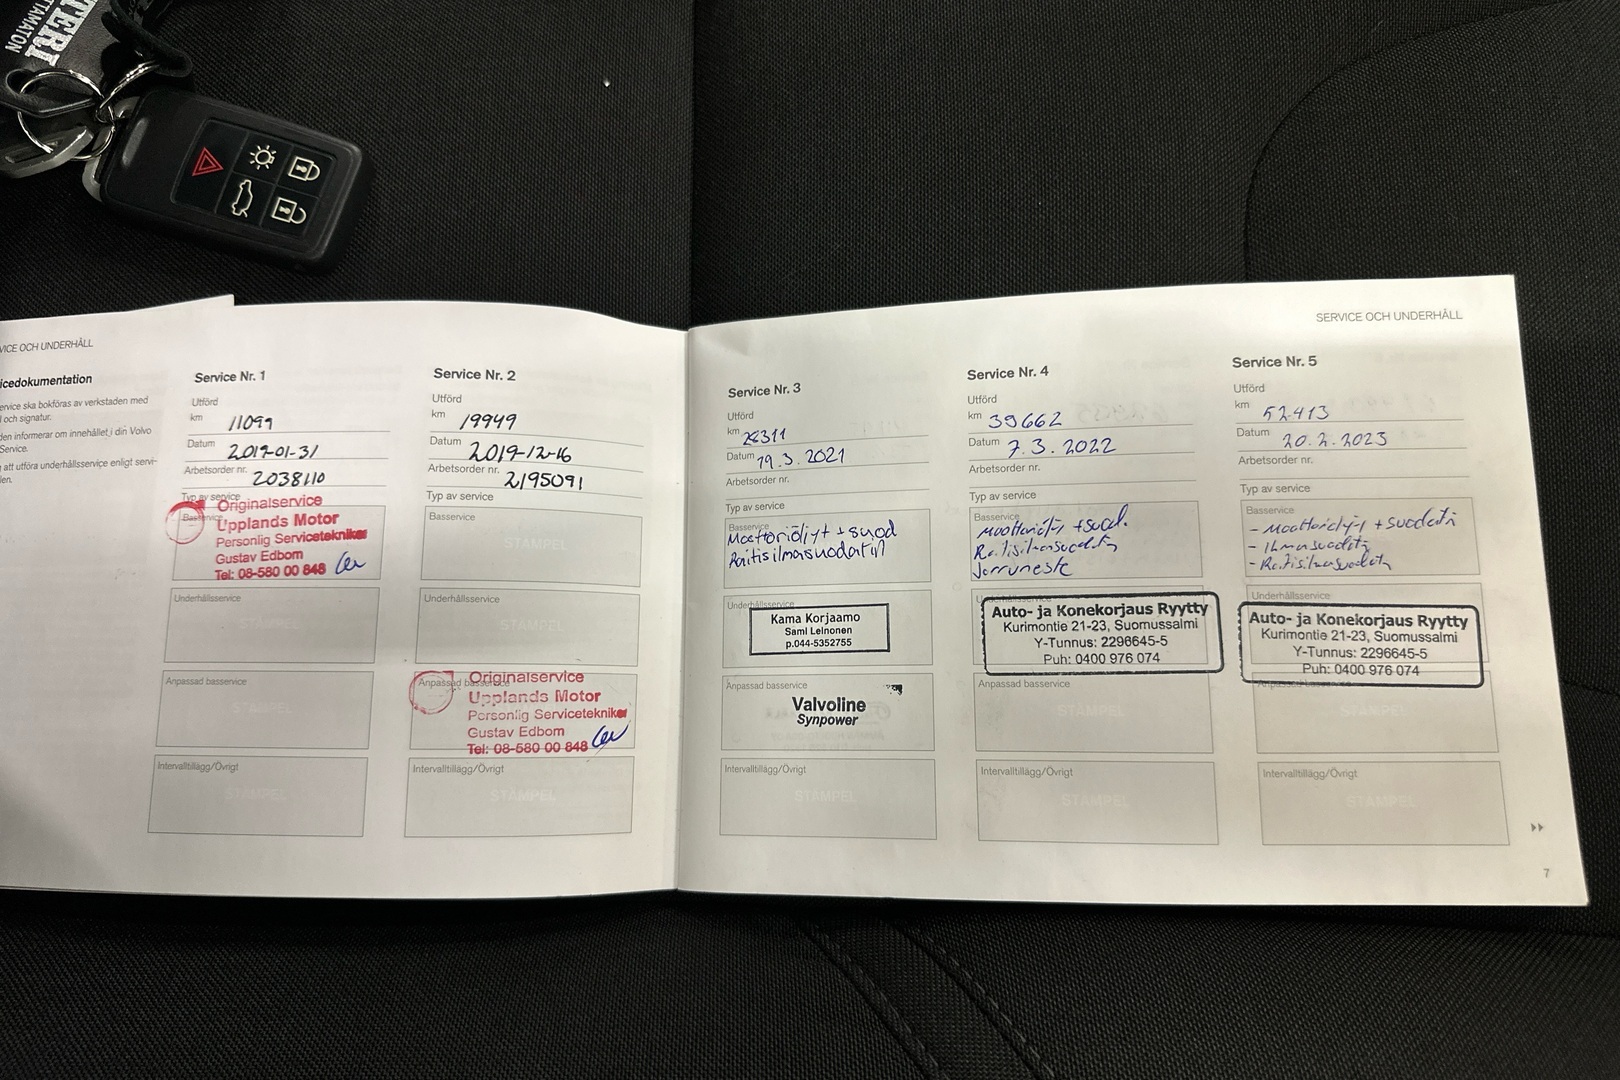 TERI
TTAMATON
VICE OCH UNDERHÅLL
icedokumentation
ervice ska bokföras av verkstaden med
l och signatur.
den informerar om innehållet i din Volvo
Service.
att utföra underhållsservice enligt servi-
len.
Service Nr. 1
Utförd
km 11099
Datum 2019-01-31
Arbetsorder nr. 2038110
Typ av service
Basservice
Originalservice
Upplands Motor
Personlig Servicetekniker
Gustav Edbom
Tel: 08-580 00 848
Underhållsservice
STÄMPEL
Anpassad basservice
STÄMPEL
Intervalltillägg/Övrigt
STÄMPEL
Service Nr. 2
Utförd
km 19949
Datum 2019-12-16
Arbetsorder nr. 2195091
Typ av service
Basservice
STÄMPEL
Underhållsservice
STÄMPEL
Anpassad basservice
Originalservice
Upplands Motor
Personlig Servicetekniker
Gustav Edbom
Tel: 08-580 00 848
Intervalltillägg/Övrigt
STÄMPEL
Service Nr. 3
Utförd
km
Datum 19.3.2021
Arbetsorder nr.
Typ av service
Basservice
Moottoriöljyt + suod
Raitisilmasuodatin
Underhållsservice
Kama Korjaamo
Sami Leinonen
p.044-5352755
Anpassad basservice
Valvoline
Synpower
Intervalltillägg/Övrigt
STÄMPEL
SERVICE OCH UNDERHÅLL
Service Nr. 4
Utförd
km 39662
Datum 7.3.2022
Arbetsorder nr.
Typ av service
Basservice
Moottoriöljy + suod.
Raitisilmansuodatin
Jarruneste
Auto- ja Konekorjaus Ryytty
Kurimontie 21-23, Suomussalmi
Y-Tunnus: 2296645-5
Puh: 0400 976 074
Anpassad basservice
STÄMPEL
Intervalltillägg/Övrigt
STÄMPEL
Service Nr. 5
Utförd
km 52413
Datum 20.2.2023
Arbetsorder nr.
Typ av service
Basservice
- Moottoriöljy + suodatin
- Ilmansuodatin
- Raitisilmansuodatin
Underhållsservice
Auto- ja Konekorjaus Ryytty
Kurimontie 21-23, Suomussalmi
Y-Tunnus: 2296645-5
Puh: 0400 976 074
Anpassad basservice
STÄMPEL
Intervalltillägg/Övrigt
STÄMPEL
7